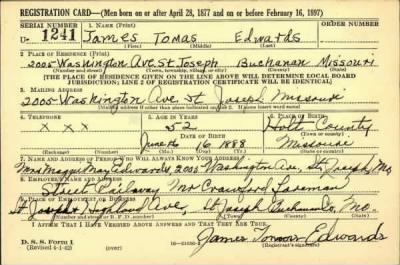 REGISTRATION CARD—(Men born on or after April 28, 1877 and on or before February 16, 1897)
SERIAL NUMBER 1. NAME (Print) ORDER NUMBER
U 1241 James Tomas Edwards
(First) (Middle) (Last)
2. PLACE OF RESIDENCE (Print)
2005 Washington Ave. St Joseph Buchanan Missouri
(Number and street) (Town, township, village, or city) (County) (State)
[THE PLACE OF RESIDENCE GIVEN ON THE LINE ABOVE WILL DETERMINE LOCAL BOARD
JURISDICTION; LINE 2 OF REGISTRATION CERTIFICATE WILL BE IDENTICAL]
3. MAILING ADDRESS
2005 Washington Ave St Joseph Missouri
[Mailing address if other than place indicated on line 2. If same insert word same]
4. TELEPHONE 5. AGE IN YEARS 6. PLACE OF BIRTH
X X X 52 Holt County
DATE OF BIRTH (Town or county)
June 16 1888 Missouri
(Mo.) (Day) (Yr.) (State or country)
7. NAME AND ADDRESS OF PERSON WHO WILL ALWAYS KNOW YOUR ADDRESS
Mrs May Edwards, 2005 Washington Ave, St Joseph, Mo
8. EMPLOYER'S NAME AND ADDRESS
Street Railway Mr Crawford Foreman
9. PLACE OF EMPLOYMENT OR BUSINESS
St Joseph & Highland Ave, St Joseph Mo.
(Number and street or R. F. D. number) (Town) (County) (State)
I AFFIRM THAT I HAVE VERIFIED ABOVE ANSWERS AND THAT THEY ARE TRUE.
D. S. S. Form 1
(Revised 4-1-42) (over) James Tomas Edwards
(Registrant's signature)